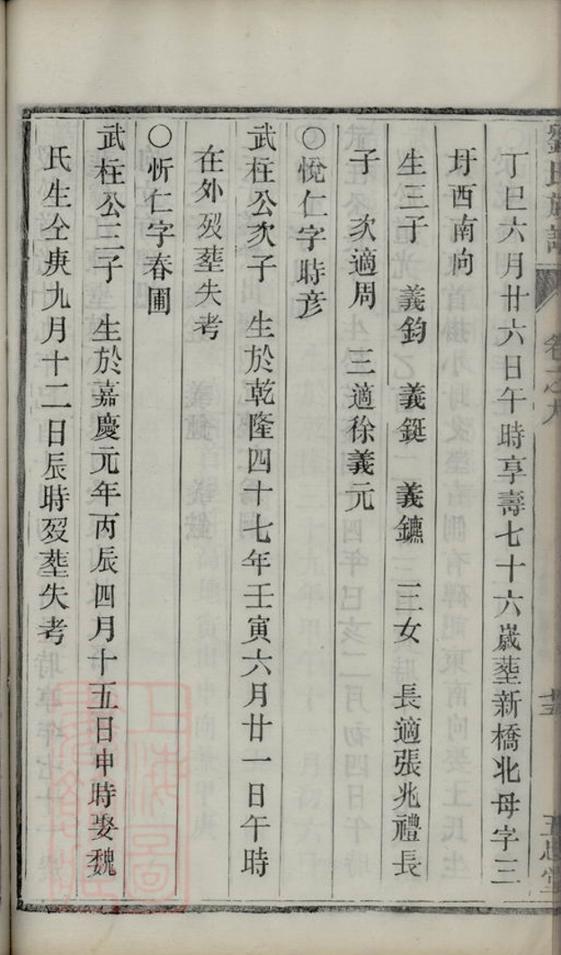 氏族譜 卷之九
丁巳六月廿六日午時享壽七十六歲塟新橋北母字三
圩西南向
生三子 義鈞 義鋌 義鑣 三女 長適張兆禮長
子 次適周 三適徐義元
〇悅仁字時彦
武柱公次子 生於乾隆四十七年壬寅六月廿一日午時
在外歿塟失考
〇忻仁字春圃
武柱公三子 生於嘉慶元年丙辰四月十五日申時娶魏
氏生仝庚九月十二日辰時歿塟失考